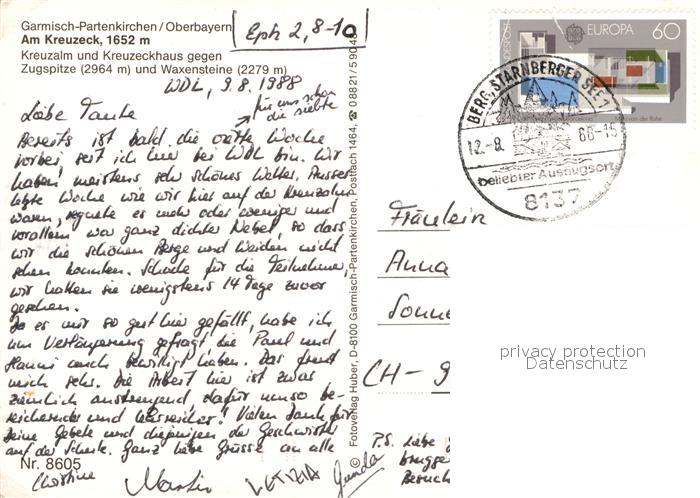 Garmisch-Partenkirchen/Oberbayern
Am Kreuzeck, 1652 m
Kreuzalm und Kreuzeckhaus gegen
Zugspitze (2964 m) und Waxensteine (2279 m)
Eph 2,8-10
WDL, 9.8.1988
für uns schon
die siebte
Liebe Tante
Bereits ist bald die dritte Woche
vorbei, seit ich hier bei WDL bin. Wir
haben meistens sehr schönes Wetter. Ausser
letzte Woche wie wir hier auf der Kreuzalm
waren, regnete es mehr oder weniger und
vorallem war ganz dichter Nebel, so dass
wir die schönen Berge und Weiden nicht
sehen konnten. Schade für die Teilnehmer,
wir hatten sie wenigstens 14 Tage zuvor
gesehen.
Da es mir so gut hier gefällt, habe ich
um Verlängerung gefragt die Paul und
Hanni auch bewilligt haben. Das freut
mich sehr. Die Arbeit hier ist zwar
ziemlich anstrengend, dafür umso be-
reichernder und lehrreicher! Vielen Dank für
Deine Gebete und diejenigen der Geschwister
auf der Schule. Ganz liebe Grüsse an alle
Christine
Martin
LETIZIA
Gunda
Nr. 8605
© Fotoverlag Huber, D-8100 Garmisch-Partenkirchen, Postfach 1464, ☎ 08821/59048
BUNDESPOST
EUROPA
60
BERG, STARNBERGER SEE 1
12.-8.
88-15
beliebter Ausflugsort
8137
Fräulein
Anna
Sonne
CH - 9
P.S. Liebe
Besuch
privacy protection
Datenschutz